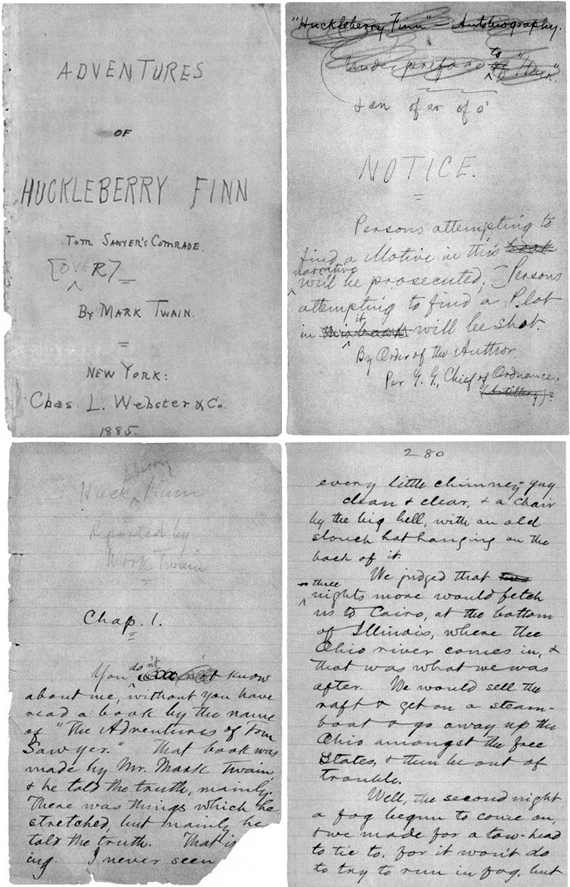 ADVENTURES
OF
HUCKLEBERRY FINN
TOM SAWYER'S COMRADE
[OVER]
BY MARK TWAIN.
NEW YORK:
Chas. L. Webster & Co.
1885.
"Huckleberry Finn" – Autobiography.
Under preface to "Huck".
NOTICE.
Persons attempting to
find a Motive in this book
narrative
will be prosecuted; Persons
attempting to find a Plot
in this book it will be shot.
By Order of the Author
Per G. G., Chief of Ordnance.
(Artillery).
Huckleberry Finn
reported by
Mark Twain
Chap. 1.
You don't know
about me, without you have
read a book by the name
of "The Adventures of Tom
Sawyer." That book was
made by Mr. Mark Twain
& he told the truth, mainly.
There was things which he
stretched, but mainly he
told the truth. That is
ing. I never seen
280
every little chimney-guy
clean & clear, & a chair
by the big bell, with an old
slouch hat hanging on the
back of it.
We judged that two
three
nights more would fetch
us to Cairo, at the bottom
of Illinois, where the
Ohio river comes in, &
that was what we was
after. We would sell the
raft & get on a steam-
boat & go away up the
Ohio amongst the free
States, & then be out of
trouble.
Well, the second night
a fog begun to come on,
& we made for a tow-head
to tie to, for it won't do
to try to run in fog, but